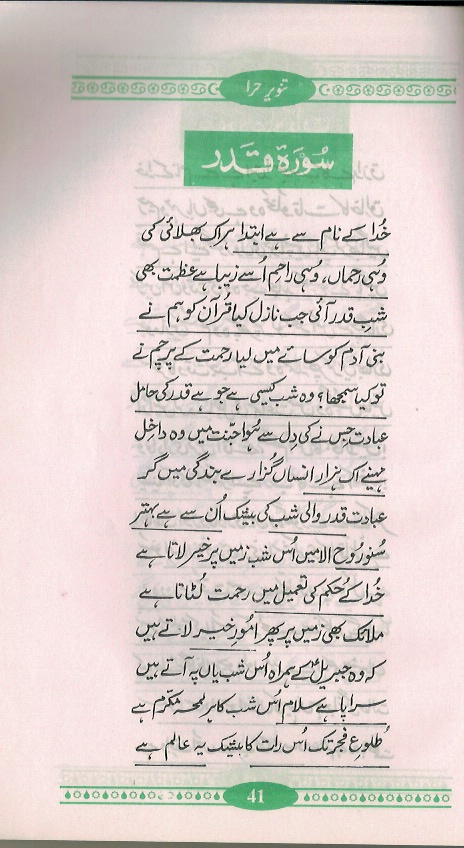 تنویرِ حرا
سُورۃ قدر
خُدا کے نام سے ہے ابتدا ہر اک بھلائی کی
وُہی رحماں، وُہی راحِم اُسے زیبا ہے عظمت بھی
شبِ قدر آئی جب نازل کیا قُرآن کو ہم نے
بنی آدم کو سائے میں لیا رحمت کے پرچم نے
تو کیا سمجھا؟ وہ شب کیسی ہے جو ہے قدر کی حامل
عبادت جس نے کی دِل سے ہُوا جنّت میں وہ داخِل
مہینے اک ہزار انساں گُزارے بندگی میں گر
عبادت قدر والی شب کی بیشک اُن سے ہے بہتر
سُنو رُوح الامیں اُس شب زمیں پر خیر لاتا ہے
خُدا کے حُکم کی تعمیل میں رحمت لُٹاتا ہے
ملائک بھی زمیں پر پھر اُمورِ خیر لاتے ہیں
کہ وہ جبریلؑ کے ہمراہ اُس شب یاں پہ آتے ہیں
سراپا ہے سلام اُس شب کا ہر لمحہ مکرّم ہے
طُلوعِ فجر تک اُس رات کا بیشک یہ عالم ہے
41